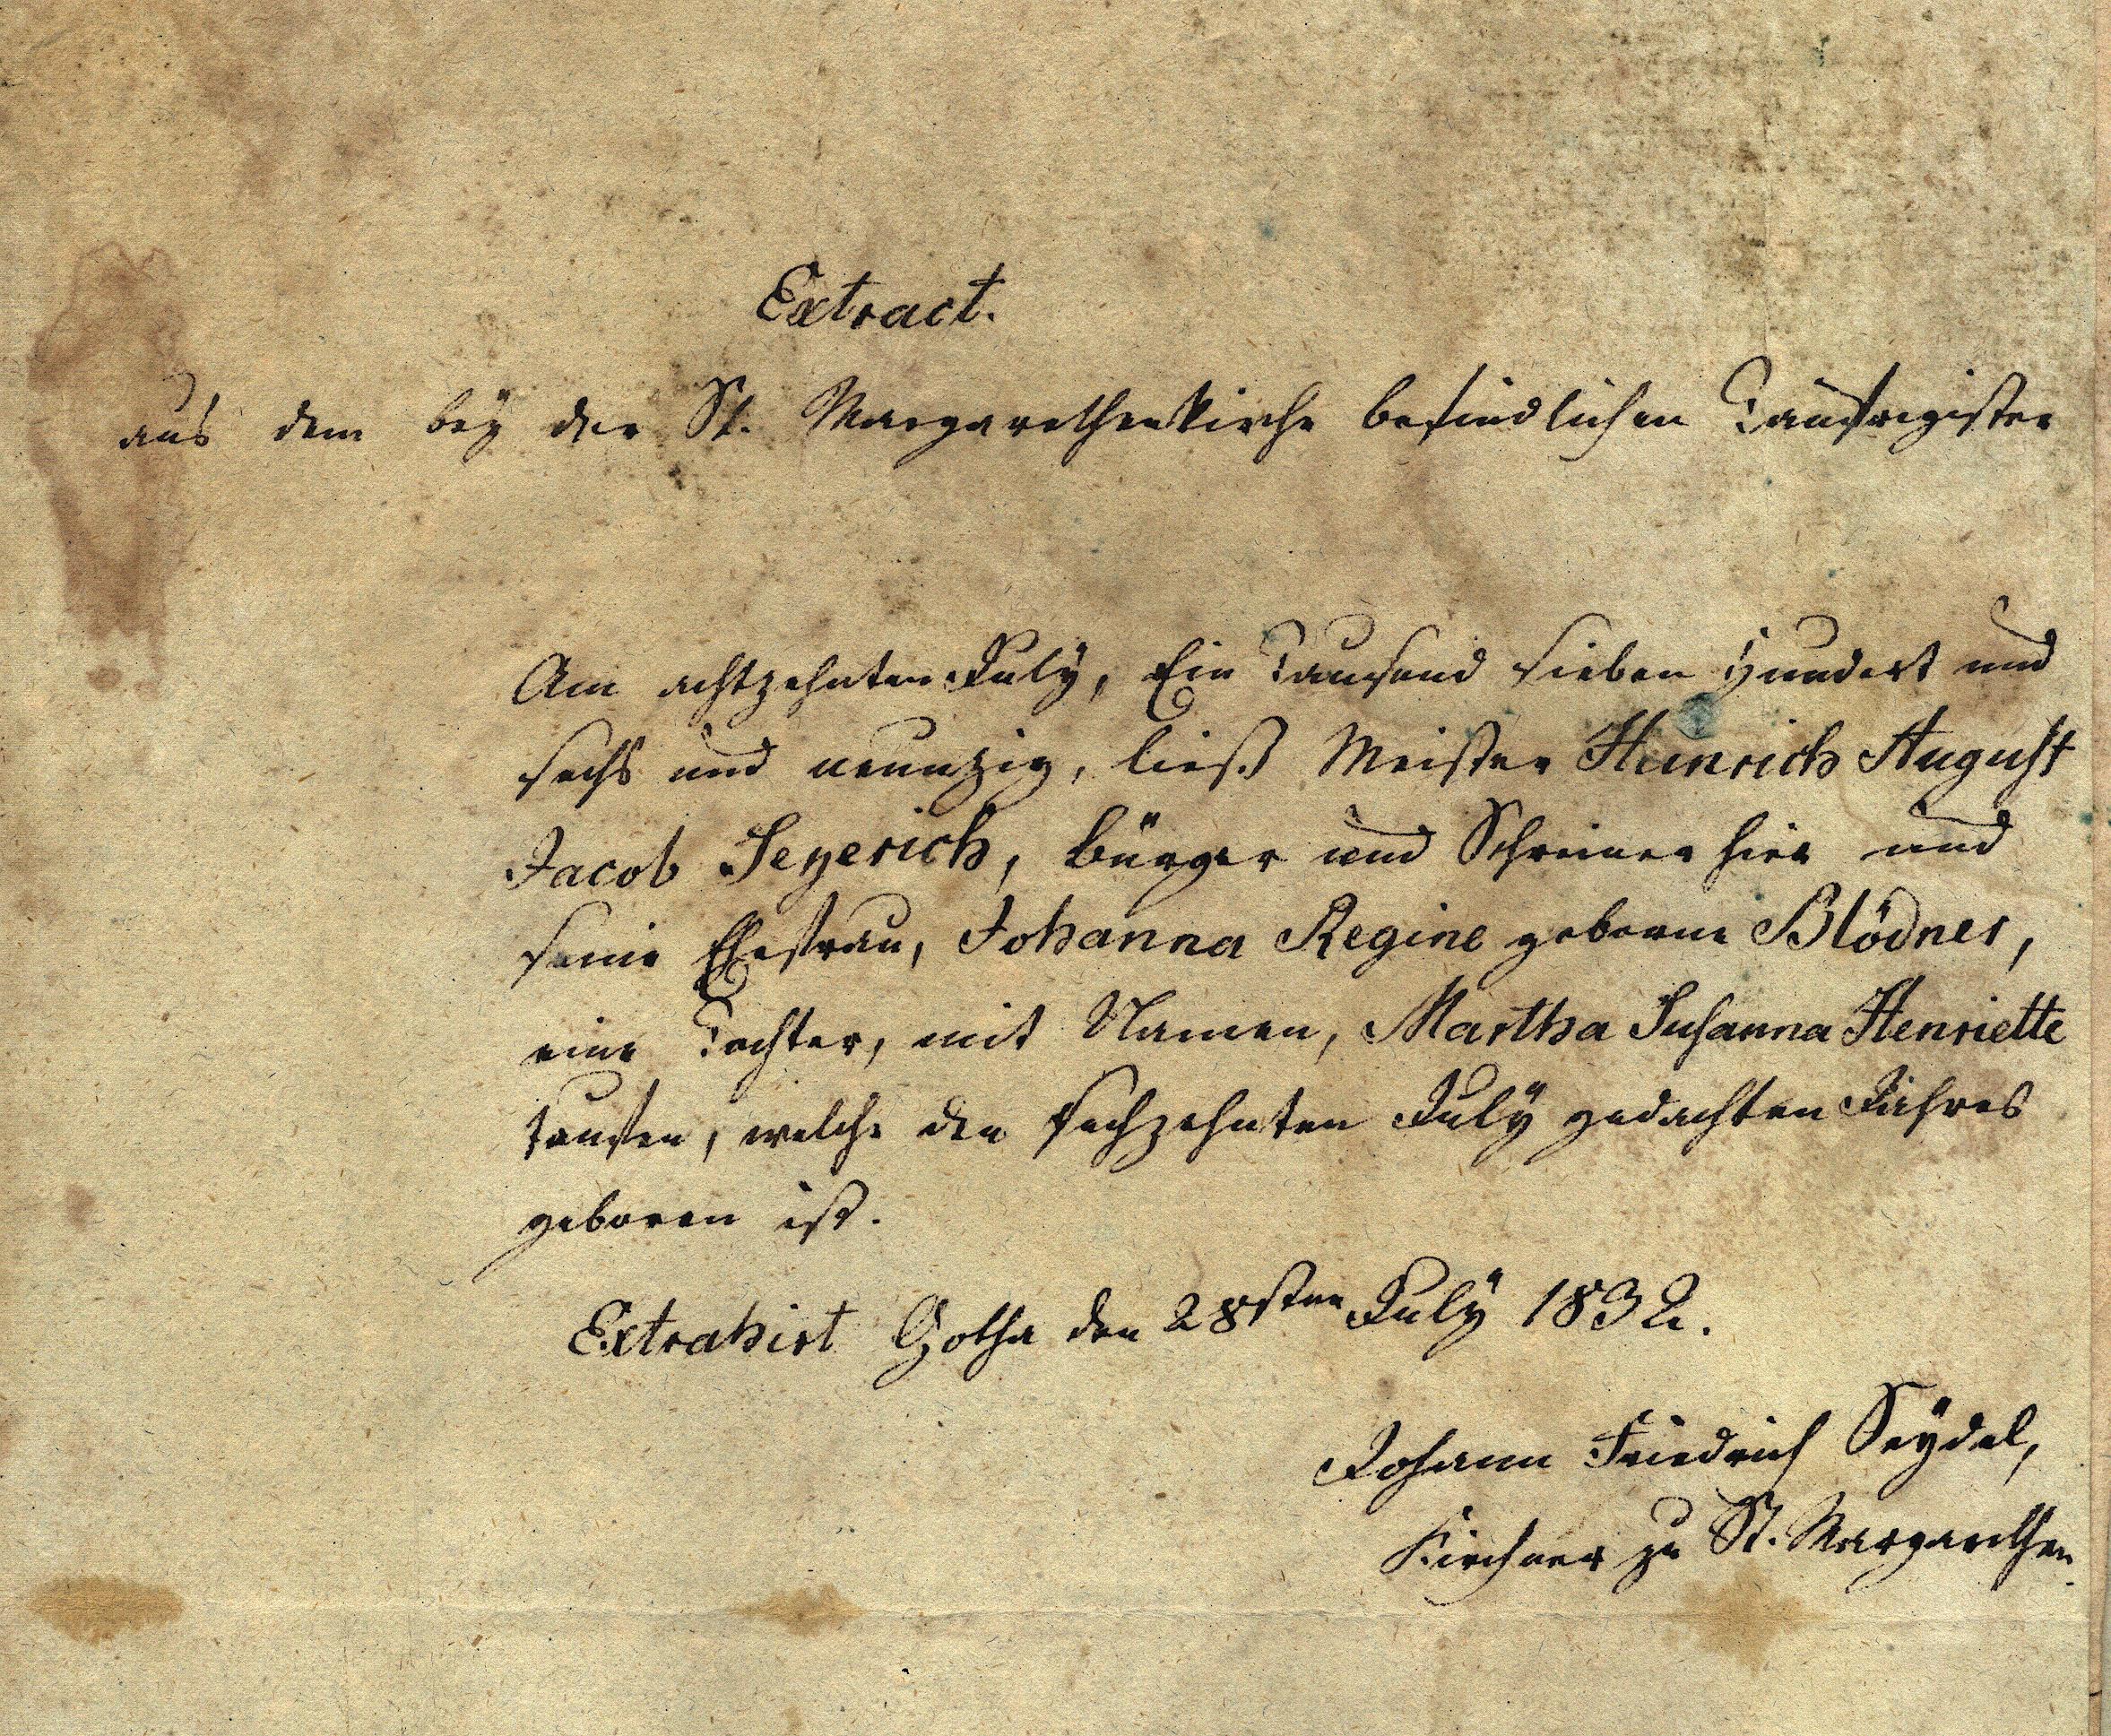 Extract.
aus dem bey der St. Margarethenkirche befindlichen Taufregister
Am achtzehnten July, Ein Tausend sieben Hundert und
sechs und neunzig, ließ Meister Heinrich August
Jacob Seyerich, Bürger und Schreiner hier und
seine Ehefrau, Johanna Regine geborne Blödner,
eine Tochter, mit Namen, Martha Susanna Henriette
taufen, welche den sechzehnten July gedachten Jahres
geboren ist.
Extrahirt Gotha den 28sten July 1832.
Johann Friedrich Seydel,
Kirchner zu St. Margarethen.